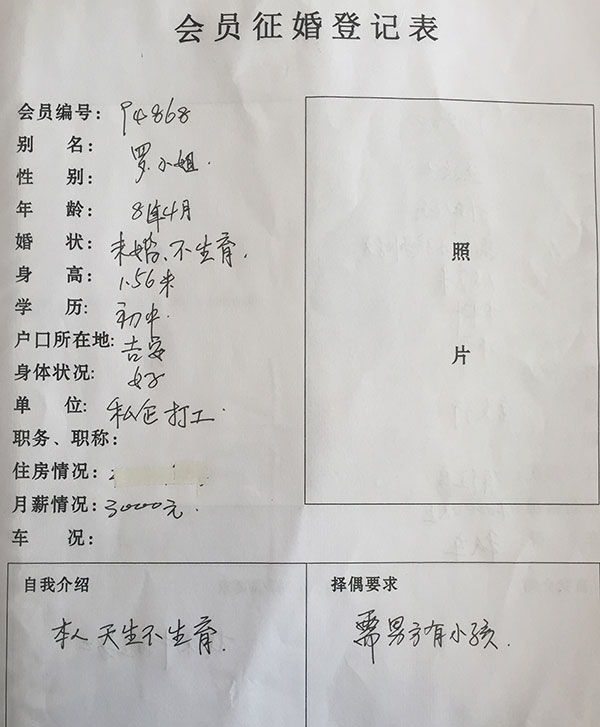 会员征婚登记表
会员编号: P4868
别 名: 罗小姐.
性 别:
年 龄: 81年4月
婚 状: 未婚、不生育.
身 高: 1.56米
学 历: 初中.
户口所在地: 吉安
身体状况: 好
单 位: 私企打工.
职务、职称:
住房情况:
月薪情况: 30000元.
车 况:
照
片
自我介绍
本人天生不生育.
择偶要求
需男方有小孩.